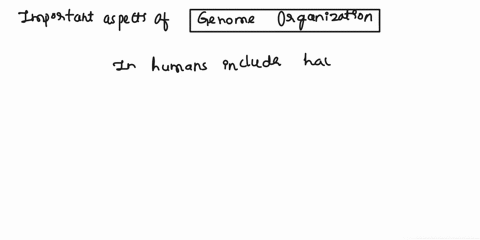 Important aspects of Genome Organization
In humans include hac